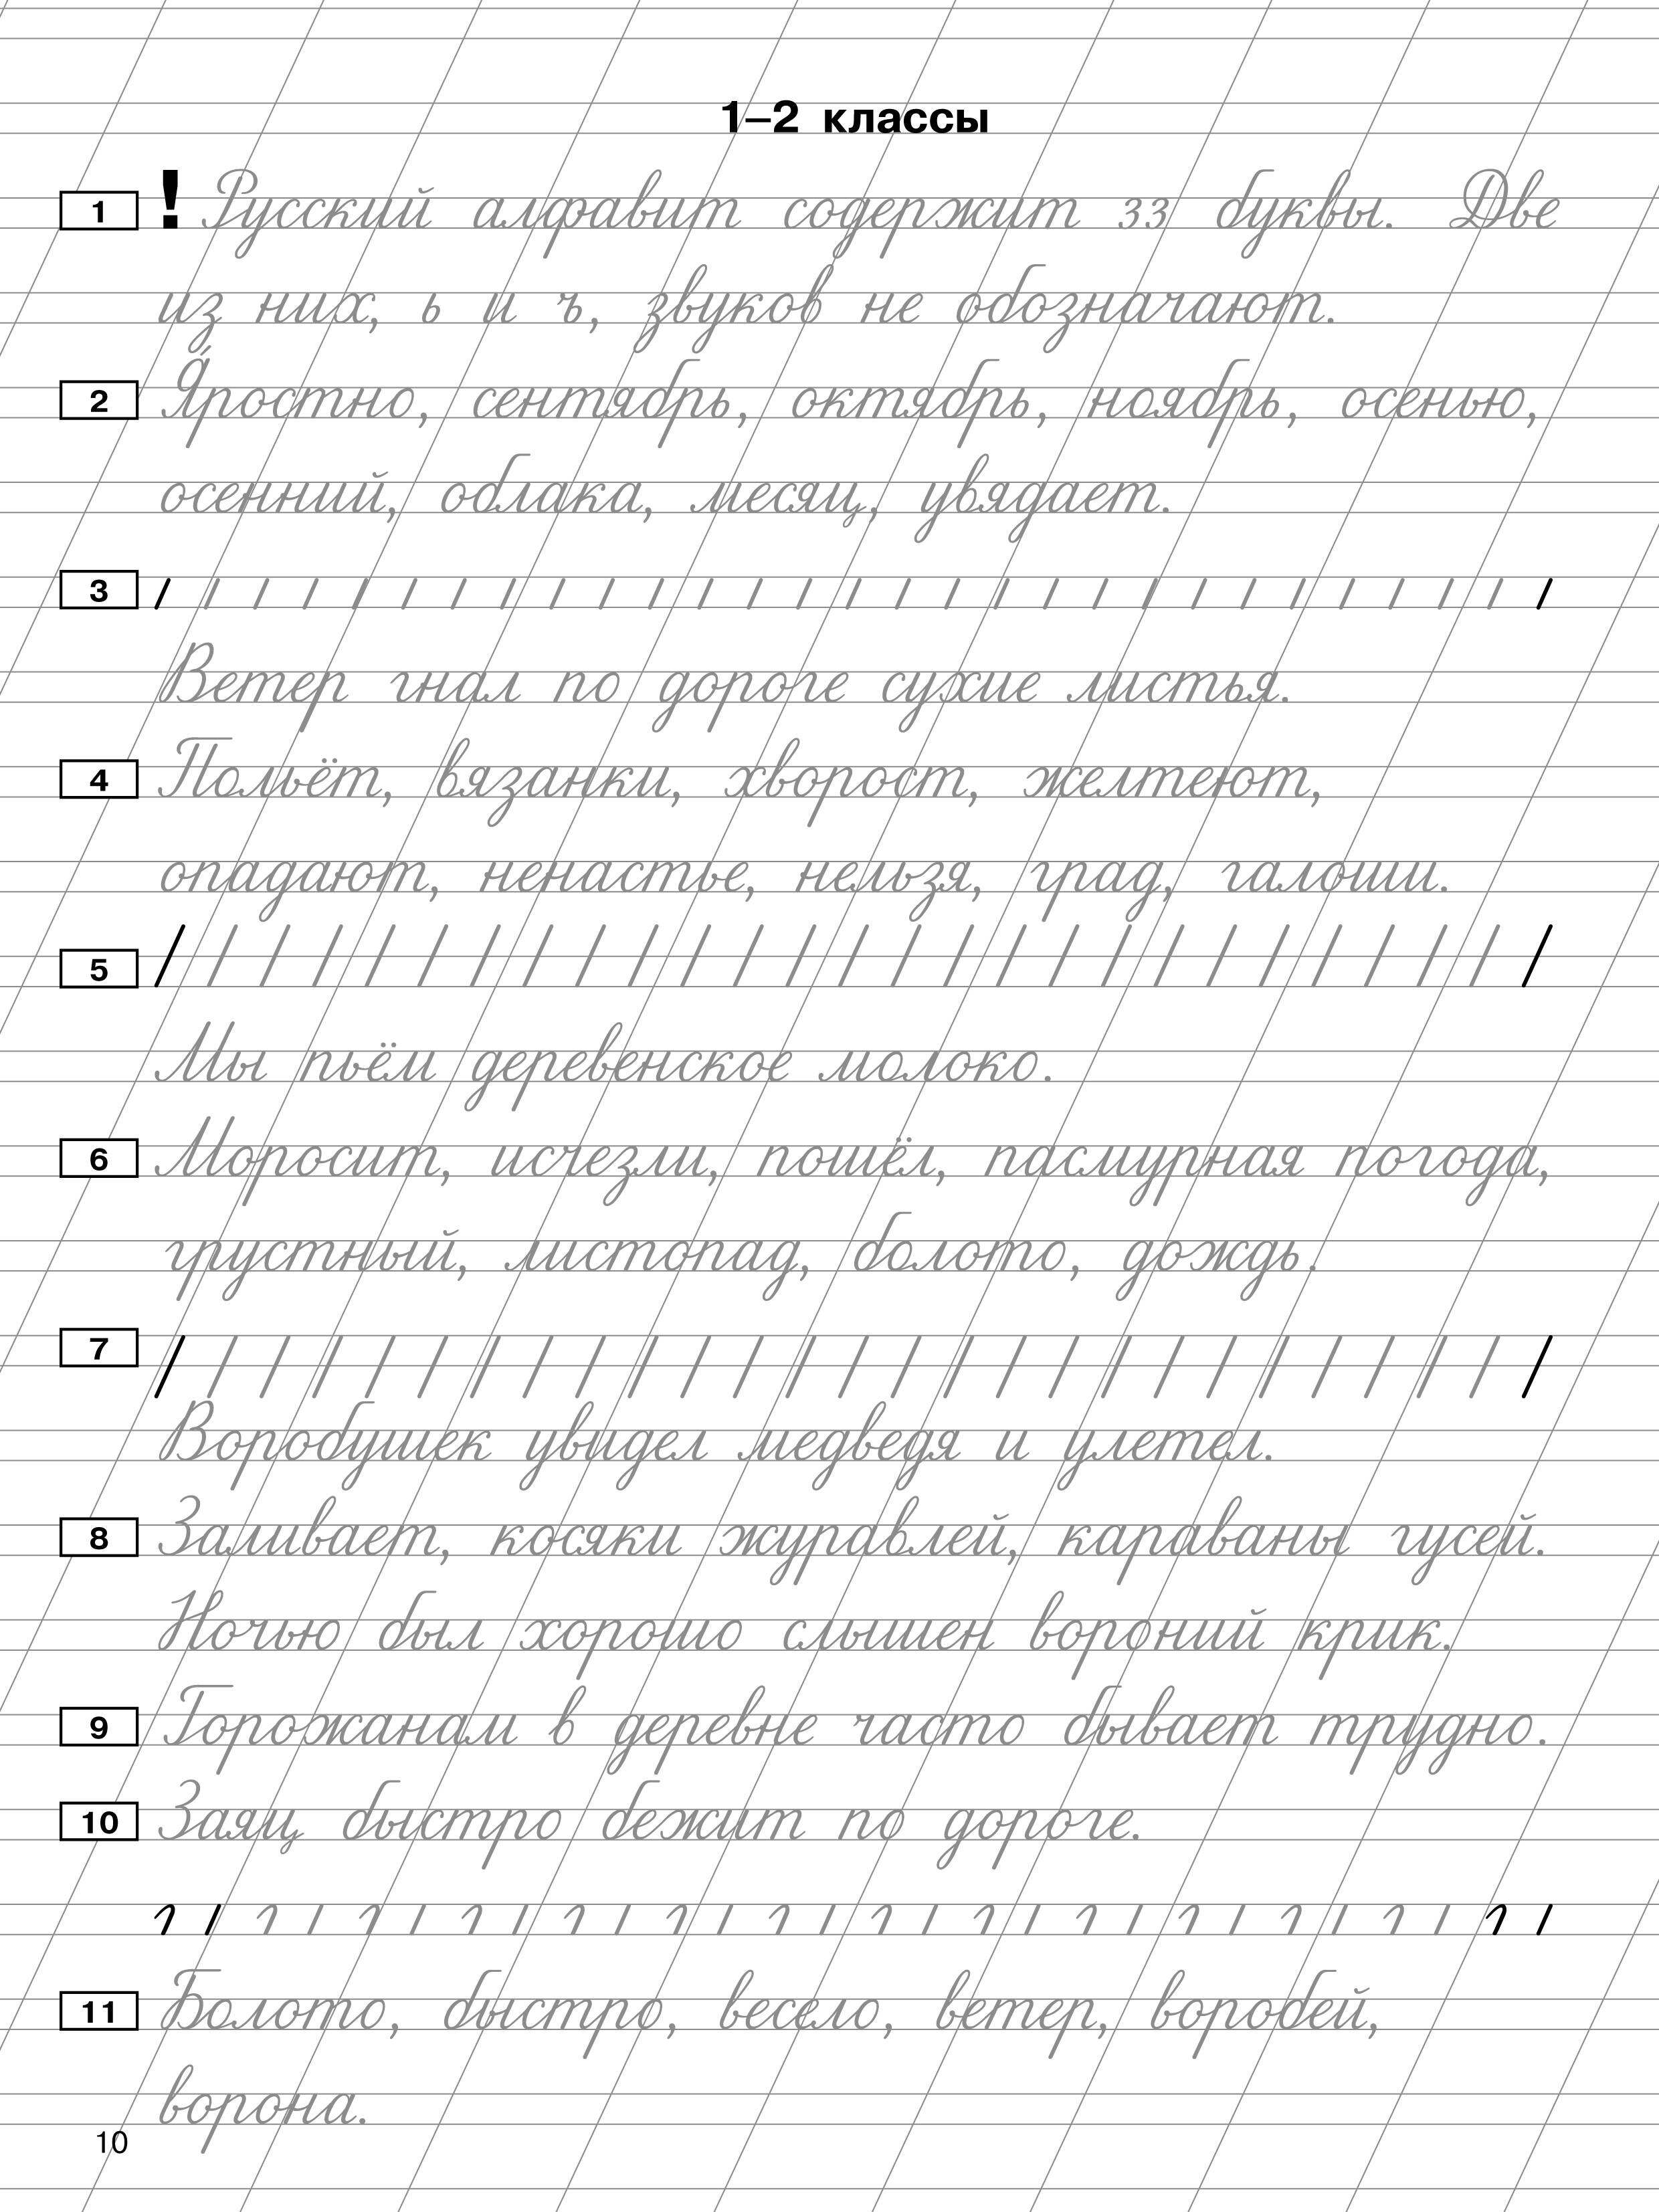 1–2 классы
1 ! Русский алфавит содержит 33 буквы. Две
из них, ь и ъ, звуков не обозначают.
2 Я́ростно, сентябрь, октябрь, ноябрь, осенью,
осенний, облака, месяц, увядает.
3
Ветер гнал по дороге сухие листья.
4 Польёт, вязанки, хворост, желтеют,
опадают, ненастье, нельзя, град, галоши.
5
Мы пьём деревенское молоко.
6 Моросит, исчезли, пошёл, пасмурная погода,
грустный, листопад, болото, дождь.
7
Воробушек увидел медведя и улетел.
8 Заливает, косяки журавлей, караваны гусей.
Ночью был хорошо слышен вороний крик.
9 Горожанам в деревне часто бывает трудно.
10 Заяц быстро бежит по дороге.
11 Болото, быстро, весело, ветер, воробей,
ворона.
10